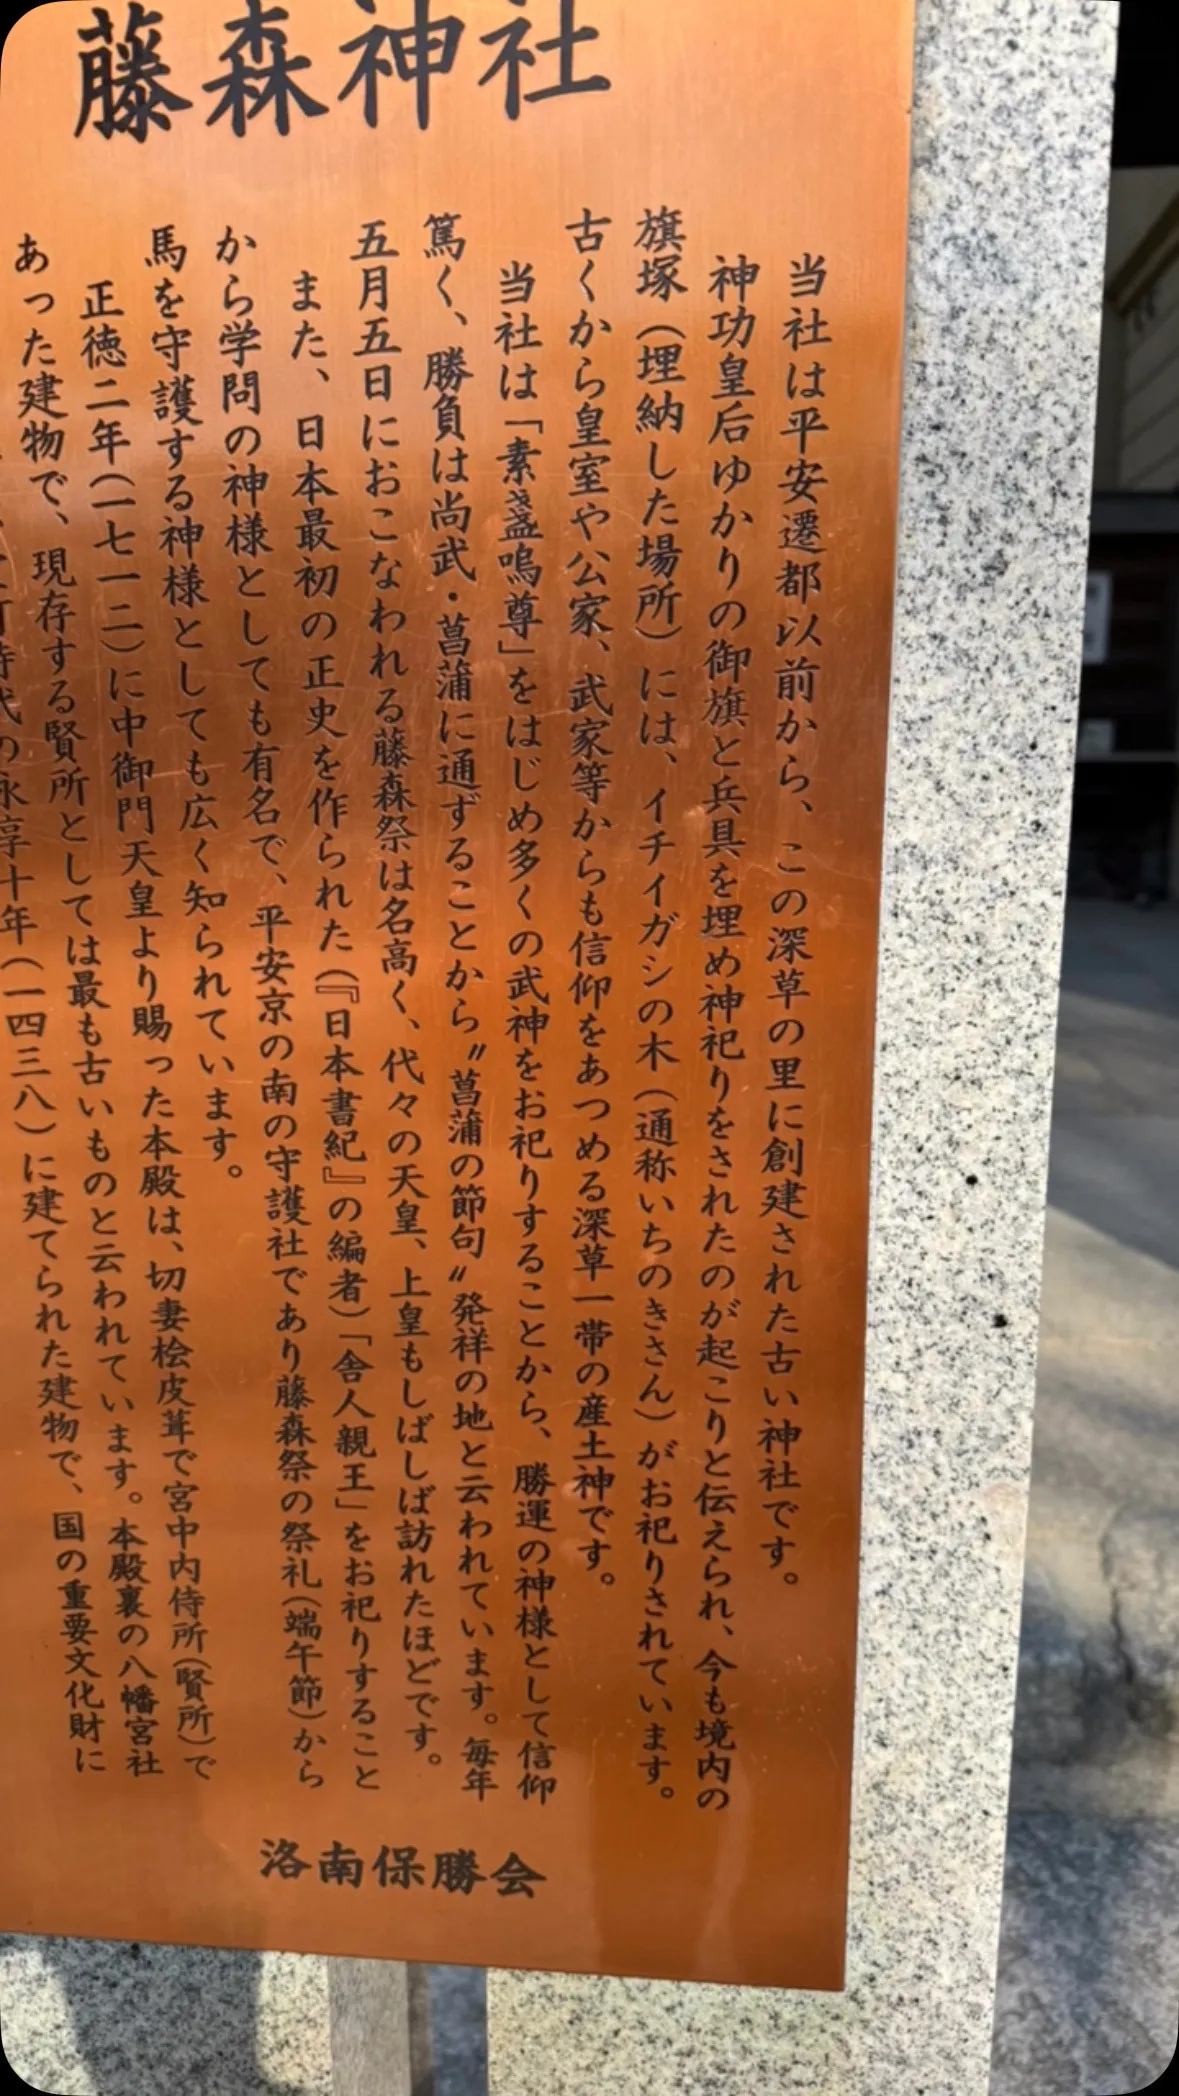 藤森神社
当社は平安遷都以前から、この深草の里に創建された古い神社です。
神功皇后ゆかりの御旗と兵具を埋め神祀りをされたのが起こりと伝えられ、今も境内の
旗塚（埋納した場所）には、イチイガシの木（通称いちのきさん）がお祀りされています。
古くから皇室や公家、武家等からも信仰をあつめる深草一帯の産土神です。
当社は「素盞嗚尊」をはじめ多くの武神をお祀りすることから、勝運の神様として信仰
篤く、勝負は尚武・菖蒲に通ずることから〝菖蒲の節句〟発祥の地と云われています。毎年
五月五日におこなわれる藤森祭は名高く、代々の天皇、上皇もしばしば訪れたほどです。
また、日本最初の正史を作られた（『日本書紀』の編者）「舎人親王」をお祀りすること
から学問の神様としても有名で、平安京の南の守護社であり藤森祭の祭礼（端午節）から
馬を守護する神様としても広く知られています。
正徳二年（一七一二）に中御門天皇より賜った本殿は、切妻桧皮葺で宮中内侍所（賢所）で
あった建物で、現存する賢所としては最も古いものと云われています。本殿裏の八幡宮社
時代の永享十年（一四三八）に建てられた建物で、国の重要文化財に
洛南保勝会